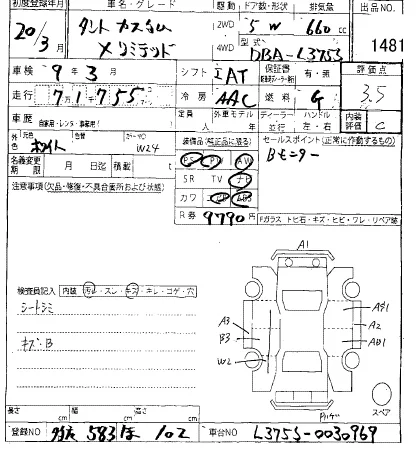 初度登録年月 車名・グレード 駆動 ドア数・形状 排気量 出品NO.
20/3月 タント カスタム 2WD 5 W 660 cc 1481
Xリミテッド 4WD 型式 DBA-L375S
車検 9年 3月 シフト IAT 保証書 有・無 評価点
走行 71755 冷房 AAC 燃料 G 3.5
車歴 自家用・レンタ・事業用 定員 人 外車モデル 年 ディーラー 並行 ハンドル 左・右 内装評価 C
外色 元色 ホワイト 色替 カラーNO W24 装備品(純正品に限る) セールスポイント(正常に作動するもの)
名義変更期限 月 日迄 積載 t PS PW AW Bモニター
注意事項(欠品・修復・不具合箇所及び状態) SR TV ナビ
カワ エアB ABS
R券 9790円 Fガラス トビ石・キズ・ヒビ・ワレ・リペア跡
A1
検査員記入 内装 汚レ・スレ・キズ・キレ・コゲ・穴
シートシミ
キズ:B
A3
B3
W2
A2
スペア
長さ cm 幅 cm 高さ cm
登録NO 583 ほ 102 車台NO L375S-0030969